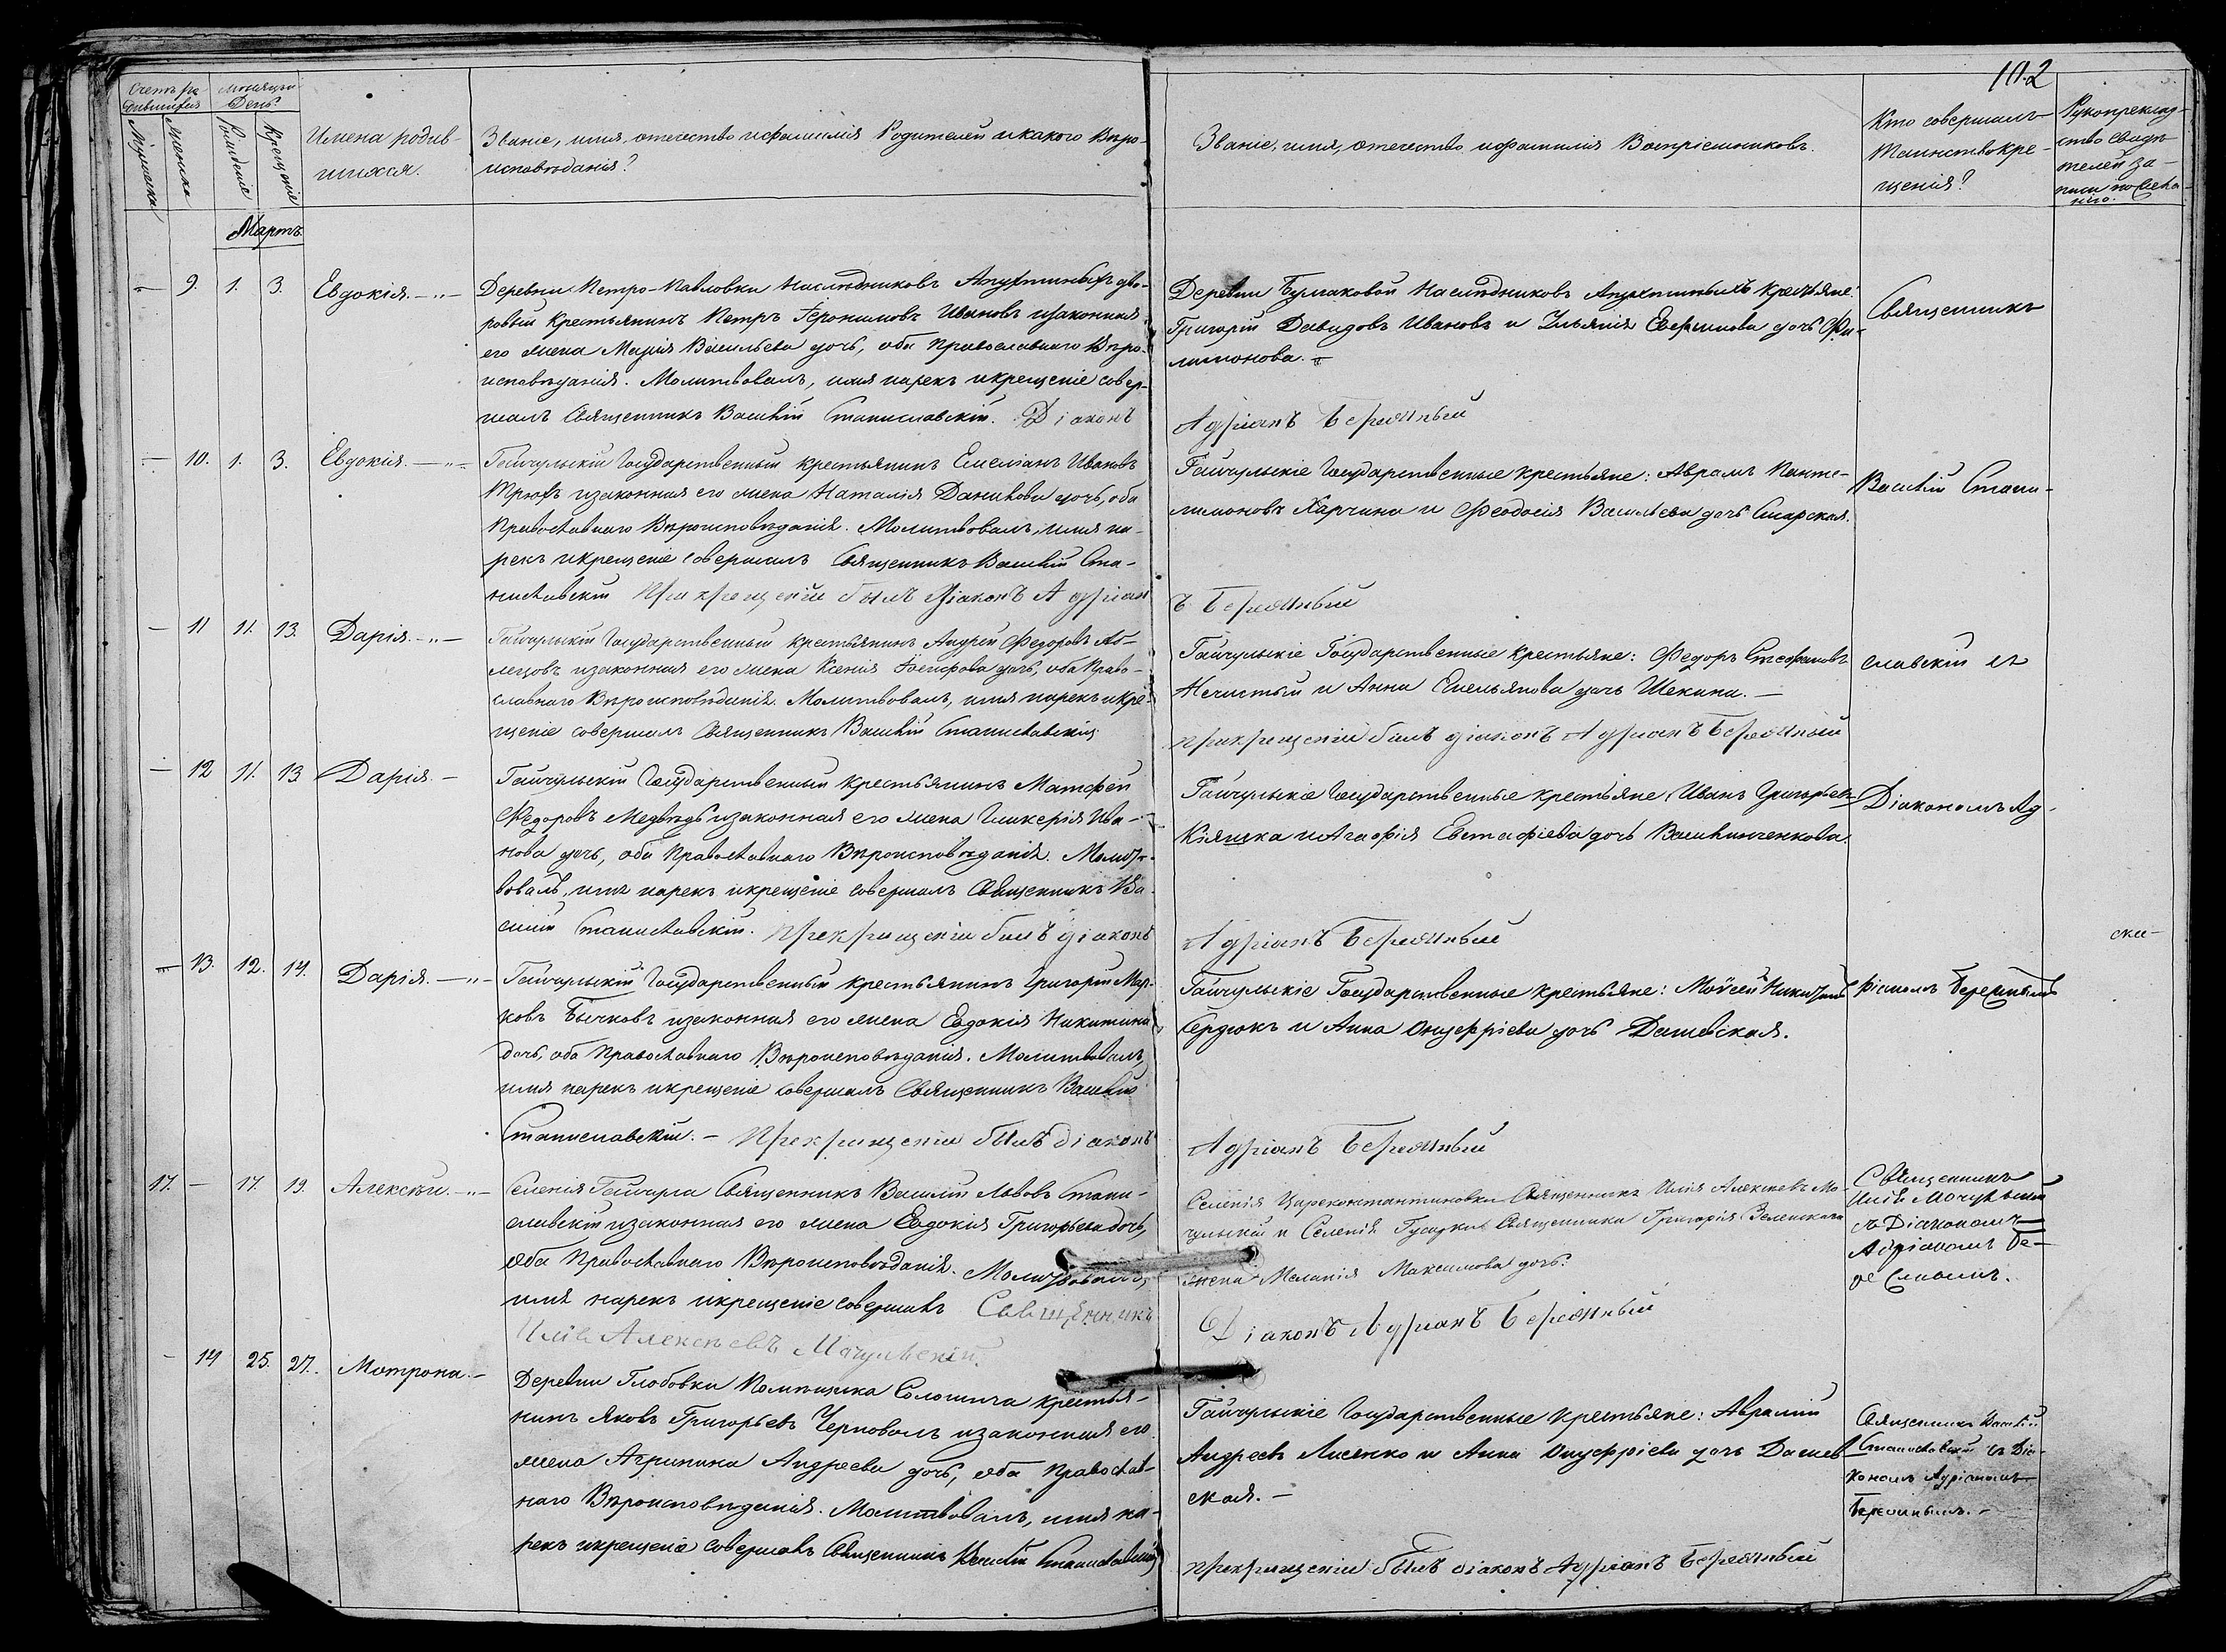 102
Счетъ ро
дившихся
Мѣсяцъ и
День
Мужеска
Женска
Рожденія
Крещенія
Имена родив-
шихся.
Званіе, имя, отечество и фамилія Родителей и какого Вѣро-
исповѣданія?
Званіе, имя, отечество и фамилія Воспріемниковъ.
Кто совершалъ
Таинство кре-
щенія?
Рукоприклад-
ство свидѣ-
телей за-
писи по жела-
нію.
Мартъ
— 9. 1. 3. Евдокія. —„—
Деревни Петро-Павловки Наслѣдниковъ Апухтиныхъ дво-
ровый крестьянинъ Петръ Іеронимовъ Ивановъ и законная
его жена Марія Васильева дочь, оба Православнаго Вѣро-
исповѣданія. Молитвовалъ, имя нарекъ и крещеніе совер-
шалъ Священникъ Василій Станиславскій. Діаконъ
Деревни Бурлаковой Наслѣдниковъ Апухтиныхъ крестьяне:
Григорій Давидовъ Ивановъ и Ульянія Евфимова дочь Фи-
лимонова. —
Адріанъ Бережный
Священникъ
— 10. 1. 3. Евдокія. —„—
Гайчульскій Государственный крестьянинъ Емеліанъ Ивановъ
Трюхъ и законная его жена Наталія Данилова дочь, оба
Православнаго Вѣроисповѣданія. Молитвовалъ, имя на-
рекъ и крещеніе совершалъ Священникъ Василій Ста-
ниславскій При крещеніи былъ Діаконъ Адріан
Гайчульскіе Государственные крестьяне: Аврамъ Панте-
лимоновъ Харчина и Феодосія Васильева дочь Сиарская.
ъ Бережный
Василій Стани-
— 11 11. 13. Дарія. —„—
Гайчульскій Государственный крестьянинъ Андрей Федоровъ Аб-
лецовъ и законная его жена Ксенія дочь, оба Право-
славнаго Вѣроисповѣданія. Молитвовалъ, имя нарекъ и кре-
щеніе совершалъ Священникъ Василій Станиславскій
Гайчульскіе Государственные крестьяне: Федоръ Стефановъ
Нечистый и Анна Емельянова дочь Шекина. —
при крещеніи былъ діаконъ Адріанъ Бережный
славскій съ
— 12 11. 13 Дарія. —
Гайчульскій Государственный крестьянинъ Матфей
Федоровъ Медвѣдь и законная его жена Гликерія Ива-
нова дочь, оба Православнаго Вѣроисповѣданія. Молит-
вовалъ, имя нарекъ и крещеніе совершалъ Священникъ Ва-
силій Станиславскій. при крещеніи былъ діаконъ
Гайчульскіе Государственные крестьяне, Иванъ Григорьевъ
Кіяшка и Агафія Евстафіева дочь Василинченкова.
Адріанъ Бережный
Діакономъ Ад-
— 13. 12. 14. Дарія. —„—
Гайчульскій Государственный крестьянинъ Григорій Мар-
ковъ Бычковъ и законная его жена Евдокія Никитина
дочь, оба Православнаго Вѣроисповѣданія. Молитвовалъ,
имя нарекъ и крещеніе совершалъ Священникъ Василій
Станиславскій. — При крещеніи былъ діаконъ
Гайчульскіе Государственные крестьяне: Моѵсей Никитинъ
Сердюкъ и Анна Онуфріева дочь Дашевская.
Адріанъ Бережный
ріаномъ Бережнымъ
17. — 17. 19. Алексѣй. —„—
Селенія Гайчула Священникъ Василій Львовъ Стани-
славскій и законная его жена Евдокія Григорьева дочь,
оба Православнаго Вѣроисповѣданія. Молитвовалъ,
имя нарекъ и крещеніе совершалъ Священникъ
Илія Алексѣевъ Мачульскій.
Селенія Цареконстантиновки Священникъ Илія Алексѣевъ Ма-
чульскій и Селенія Гусарки Священника Григорія Зеленскаго
жена Меланія Максимова дочь.
Діаконъ Адріанъ Бережный
Священникъ
Илія Мачульскій
съ Діакономъ
Адріаномъ Бе-
режнымъ.
— 14 25. 27. Мотрона. —
Деревни Глобовки Помѣщика Солошича крестья-
нинъ Яковъ Григорьевъ Черноволъ и законная его
жена Агрипина Андреева дочь, оба Православ-
наго Вѣроисповѣданія. Молитвовалъ, имя на-
рекъ и крещеніе совершалъ Священникъ Василій Станиславскій
Гайчульскіе Государственные крестьяне: Аврамій
Андреевъ Лисенко и Анна Онуфріева дочь Дашев-
ская. —
при крещеніи былъ діаконъ Адріанъ Бережный
Священникъ Василій
Станиславскій съ Діа-
кономъ Адріаномъ
Бережнымъ. —